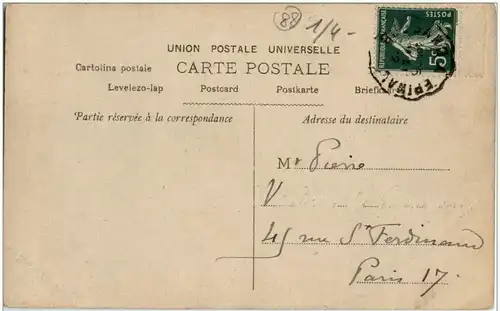 88 1/4 -
POSTES
REPUBLIQUE FRANÇAISE
5
EPINAL
UNION POSTALE UNIVERSELLE
Cartolina postale CARTE POSTALE
Levelezo-lap Postcard Postkarte
Partie réservée à la correspondance
Adresse du destinataire
Mr Pierre
45 rue St Ferdinand
Paris 17.